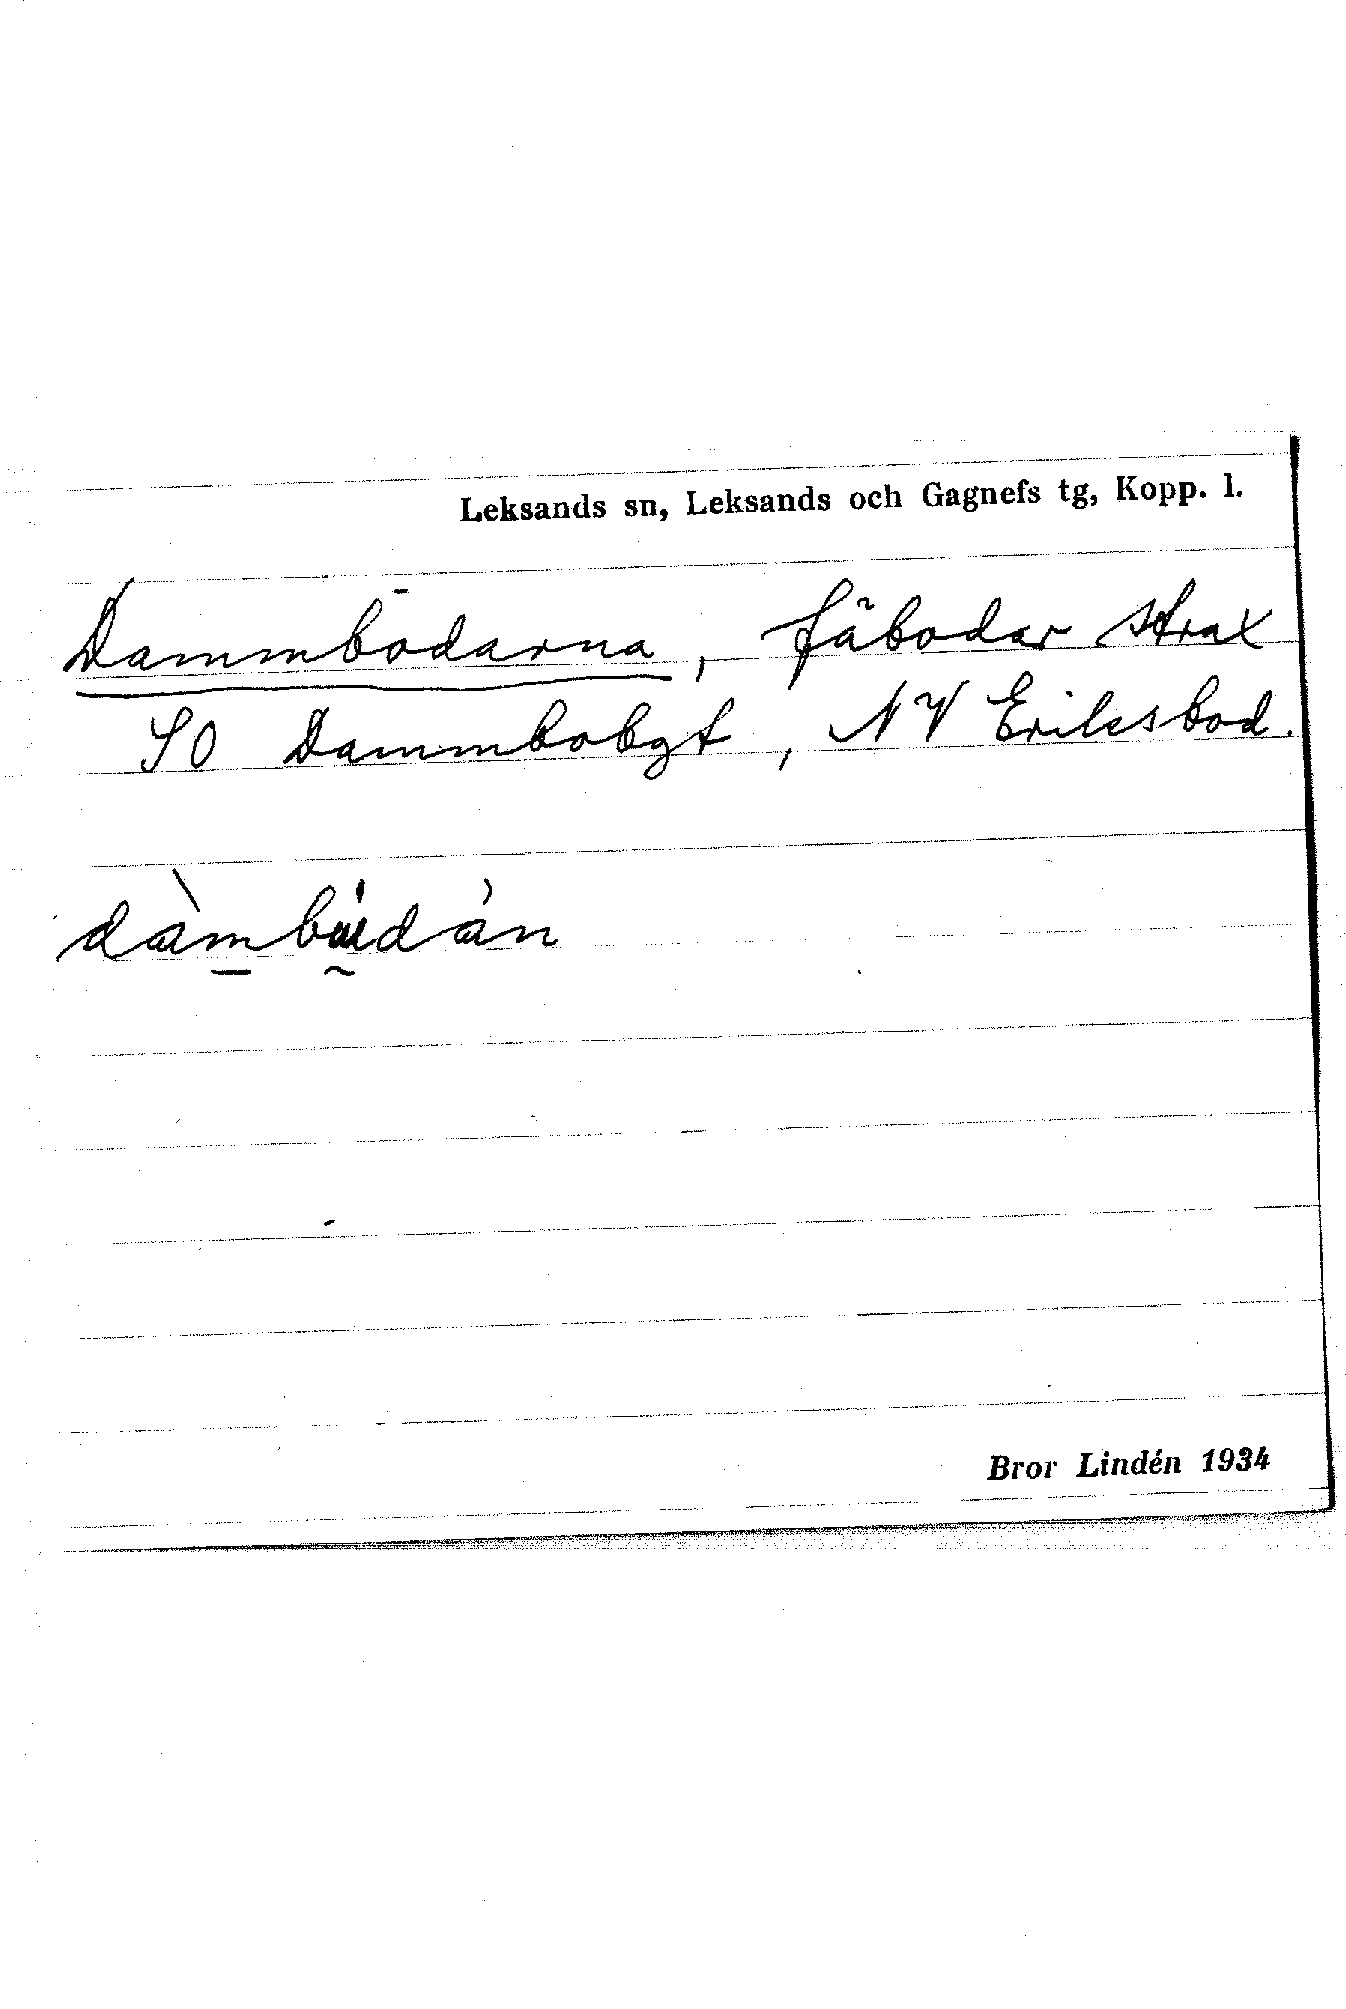 Leksands sn, Leksands och Gagnefs tg, Kopp. l.
Dammbodarna, fäbodar strax
SO Dammbobgt, NV Eriksbod.
Bror Lindén 1934